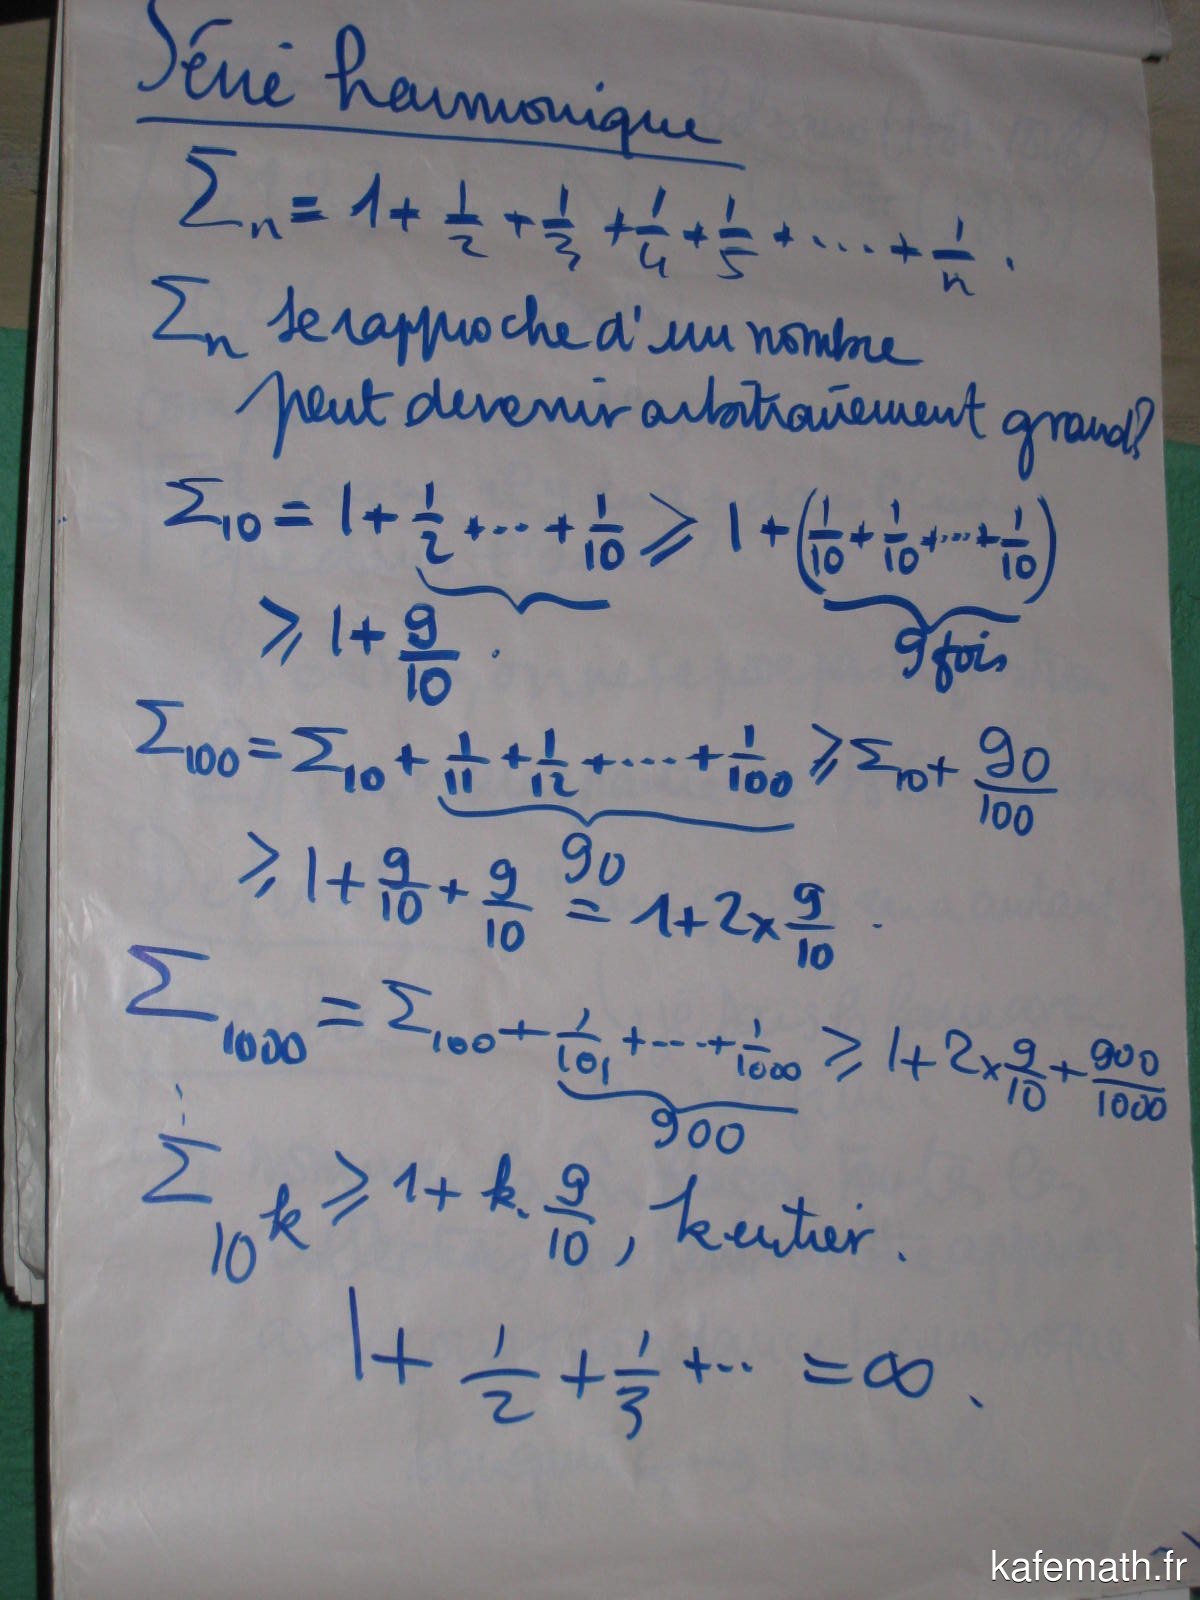 Série harmonique
Σn = 1 + 1/2 + 1/3 + 1/4 + 1/5 + ... + 1/n .
Σn se rapproche d'un nombre
peut devenir arbitrairement grand?
Σ10 = 1 + 1/2 + ... + 1/10 ⩾ 1 + (1/10 + 1/10 + ... + 1/10)
9 fois
⩾ 1 + 9/10 .
Σ100 = Σ10 + 1/11 + 1/12 + ... + 1/100 ⩾ Σ10 + 90/100
90
⩾ 1 + 9/10 + 9/10 = 1 + 2 × 9/10 .
Σ1000 = Σ100 + 1/101 + ... + 1/1000 ⩾ 1 + 2 × 9/10 + 900/1000
900
⋮
Σ10^k ⩾ 1 + k. 9/10 , k entier .
1 + 1/2 + 1/3 + ... = ∞ .
kafemath.fr